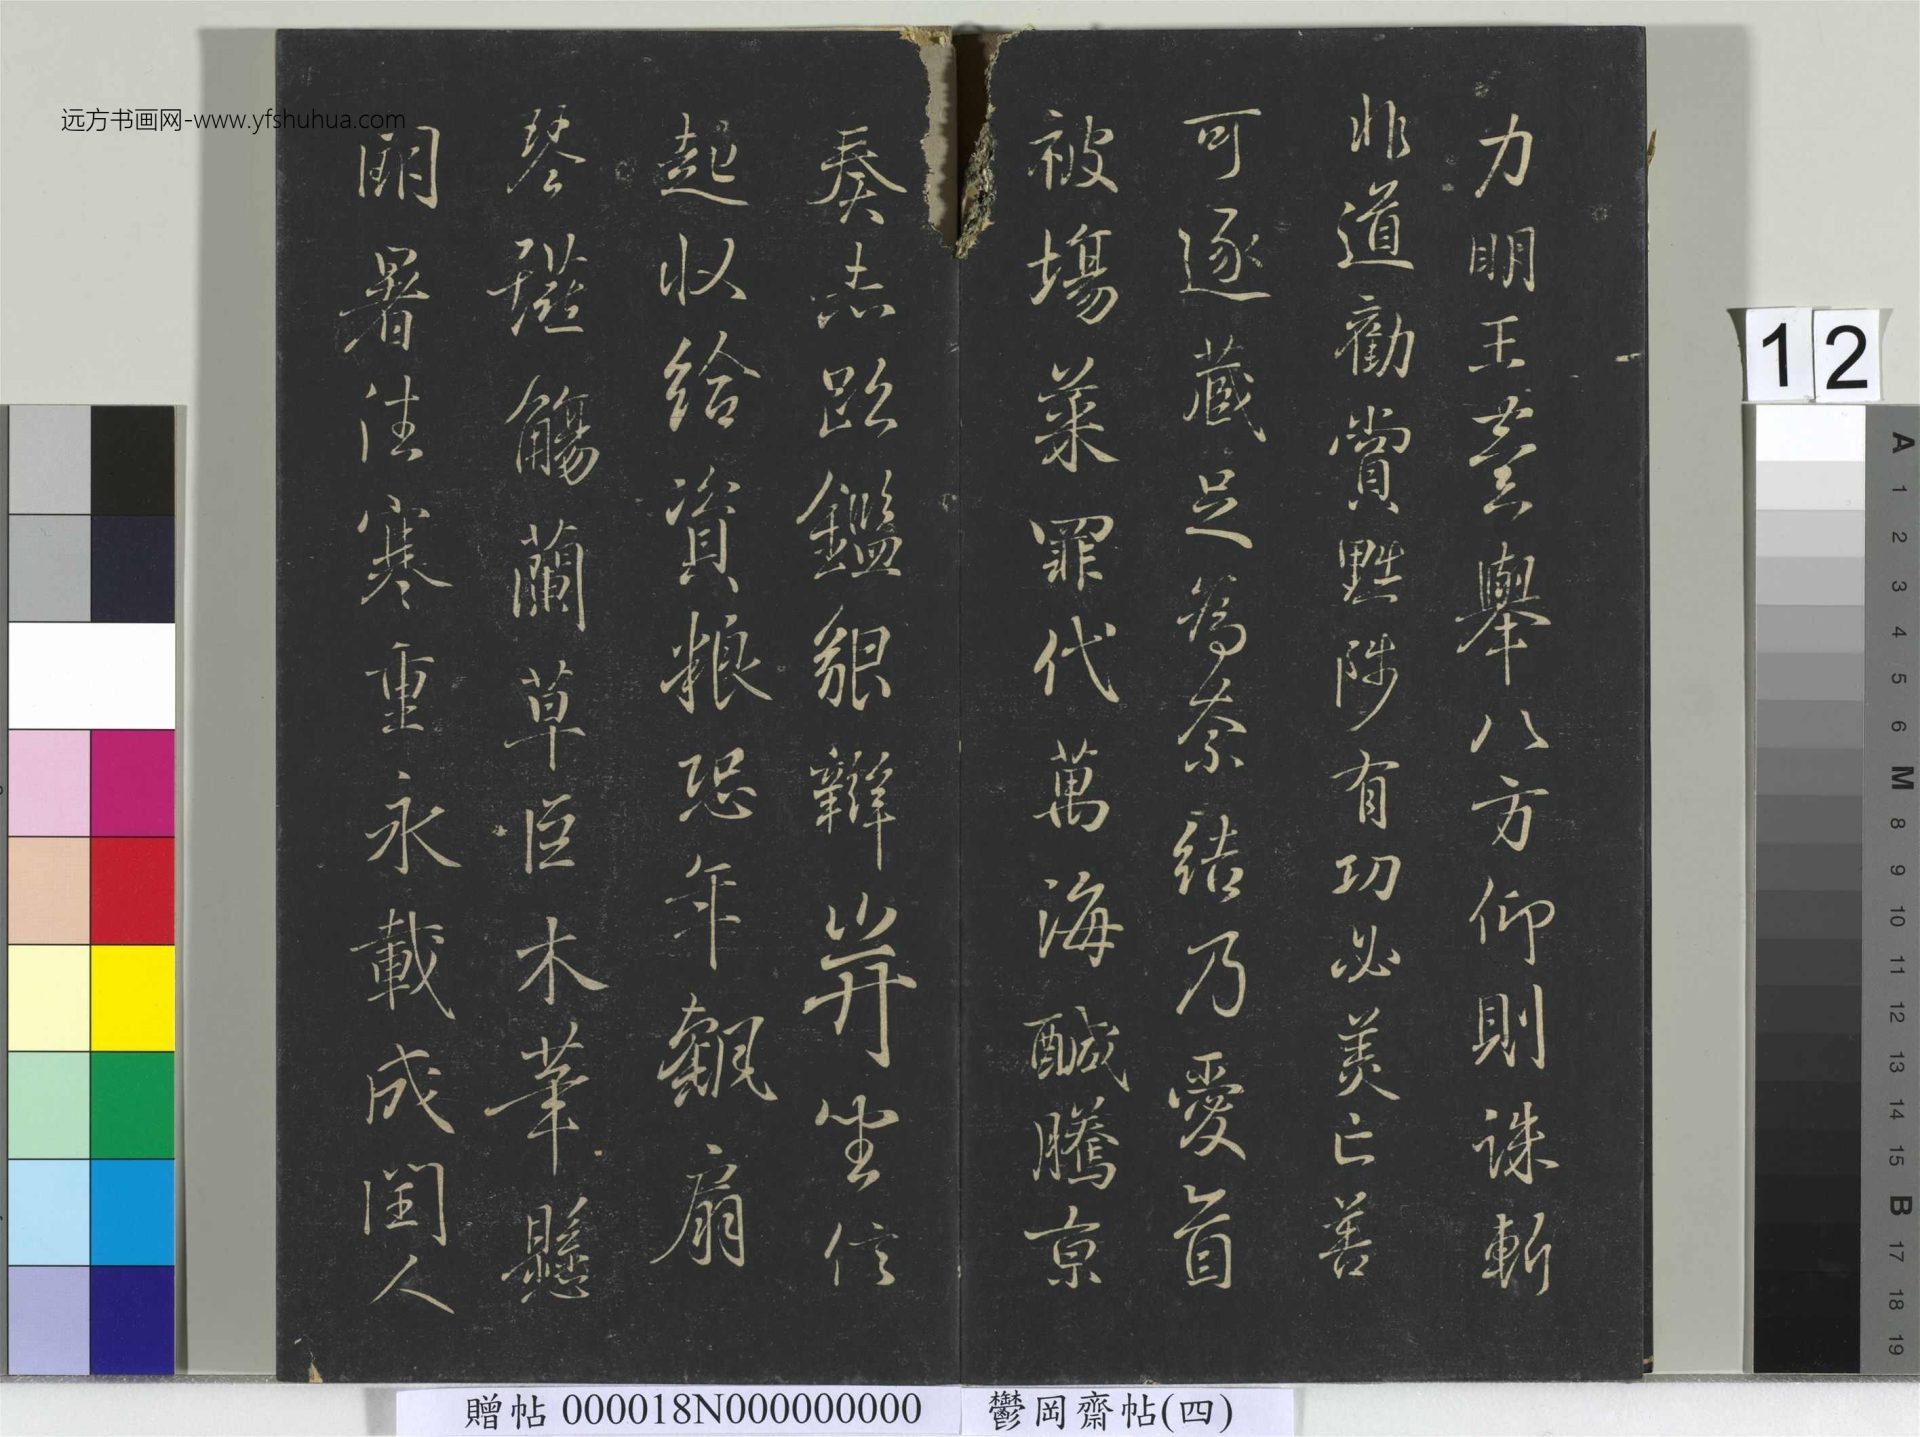 力明王芸舉八方仰則誅斬
非道勸賞黜陟有功必美亡善
可逐藏足為奈結乃愛首
被塲菜罪代萬海醎騰京
奏志跎鑑貌辯并坐信
起收給資粮恐年觀扇
琴筵觴蘭草臣木華懸
明暑往寒重永載成閏人
远方书画网-www.yfshuhua.com
12
A 1 2 3 4 5 6 M 8 9 10 11 12 13 14 15 B 17 18 19
贈帖 000018N000000000
鬱岡齋帖(四)